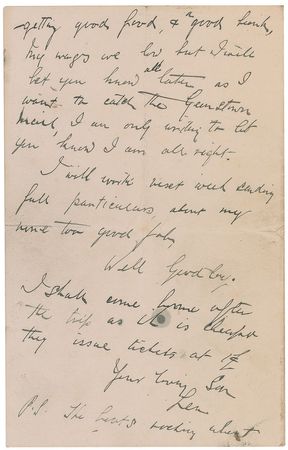 getting good food, & a good bunk,
My wages are low but I will
let you know all later as I
want to catch the Queenstown
mail, I am only writing to let
you know I am all right.
I will write next week sending
full particulars about my
none too good job
Well Goodbye.
I shall come home after
the trip as it is cheaper
they issue tickets at
Your loving Son
Len
P.S. The boats rocking about